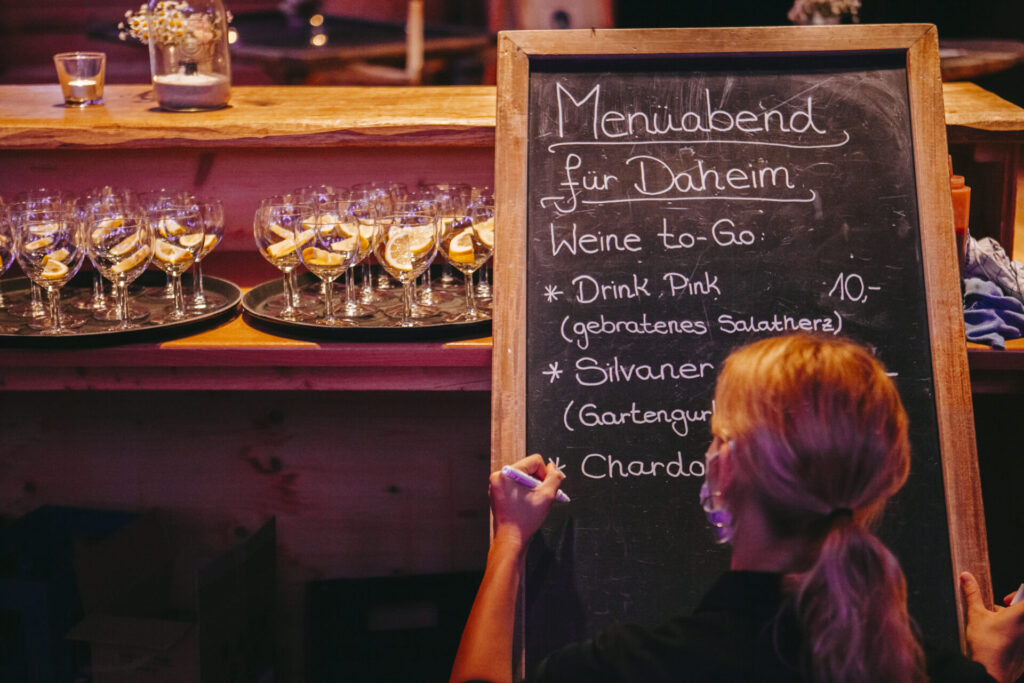 Menüabend
für Daheim
Weine to-Go:
* Drink Pink 10,-
(gebratenes Salatherz)
* Silvaner